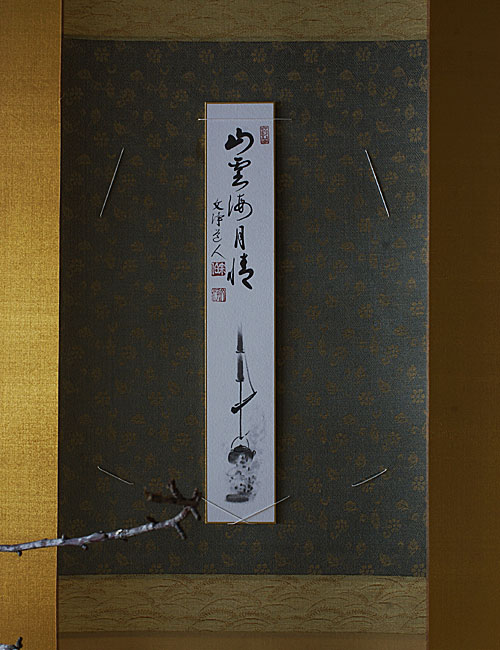 山雲海月情
文浄道人